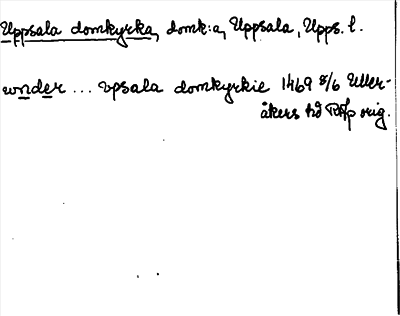 Uppsala domkyrka, domk:a, Uppsala, Upps. l.
wnder ... vpsala domkyrkie 1469 8/6 Uller-
åkers hd RAp orig.